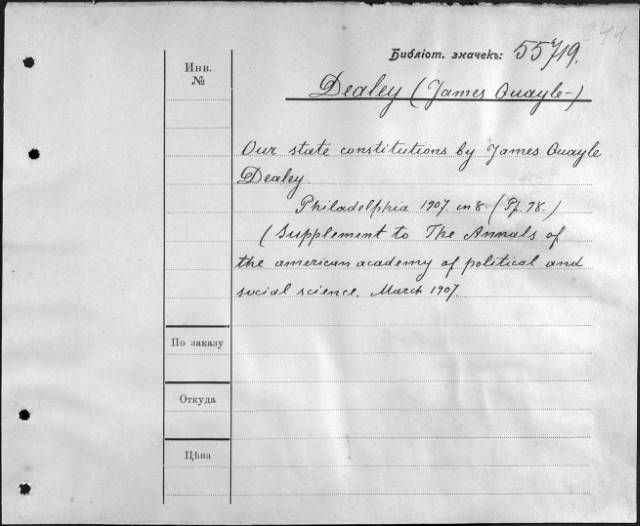 Библіот. значекъ: 55/719.
Инв.
№
Dealey (James Quayle-)
Our state constitutions by James Quayle
Dealey.
Philadelphia 1907. in 8 (Pp. 98.)
(Supplement to The Annals of
the american academy of political and
social science. March 1907.
По заказу
Откуда
Цѣна